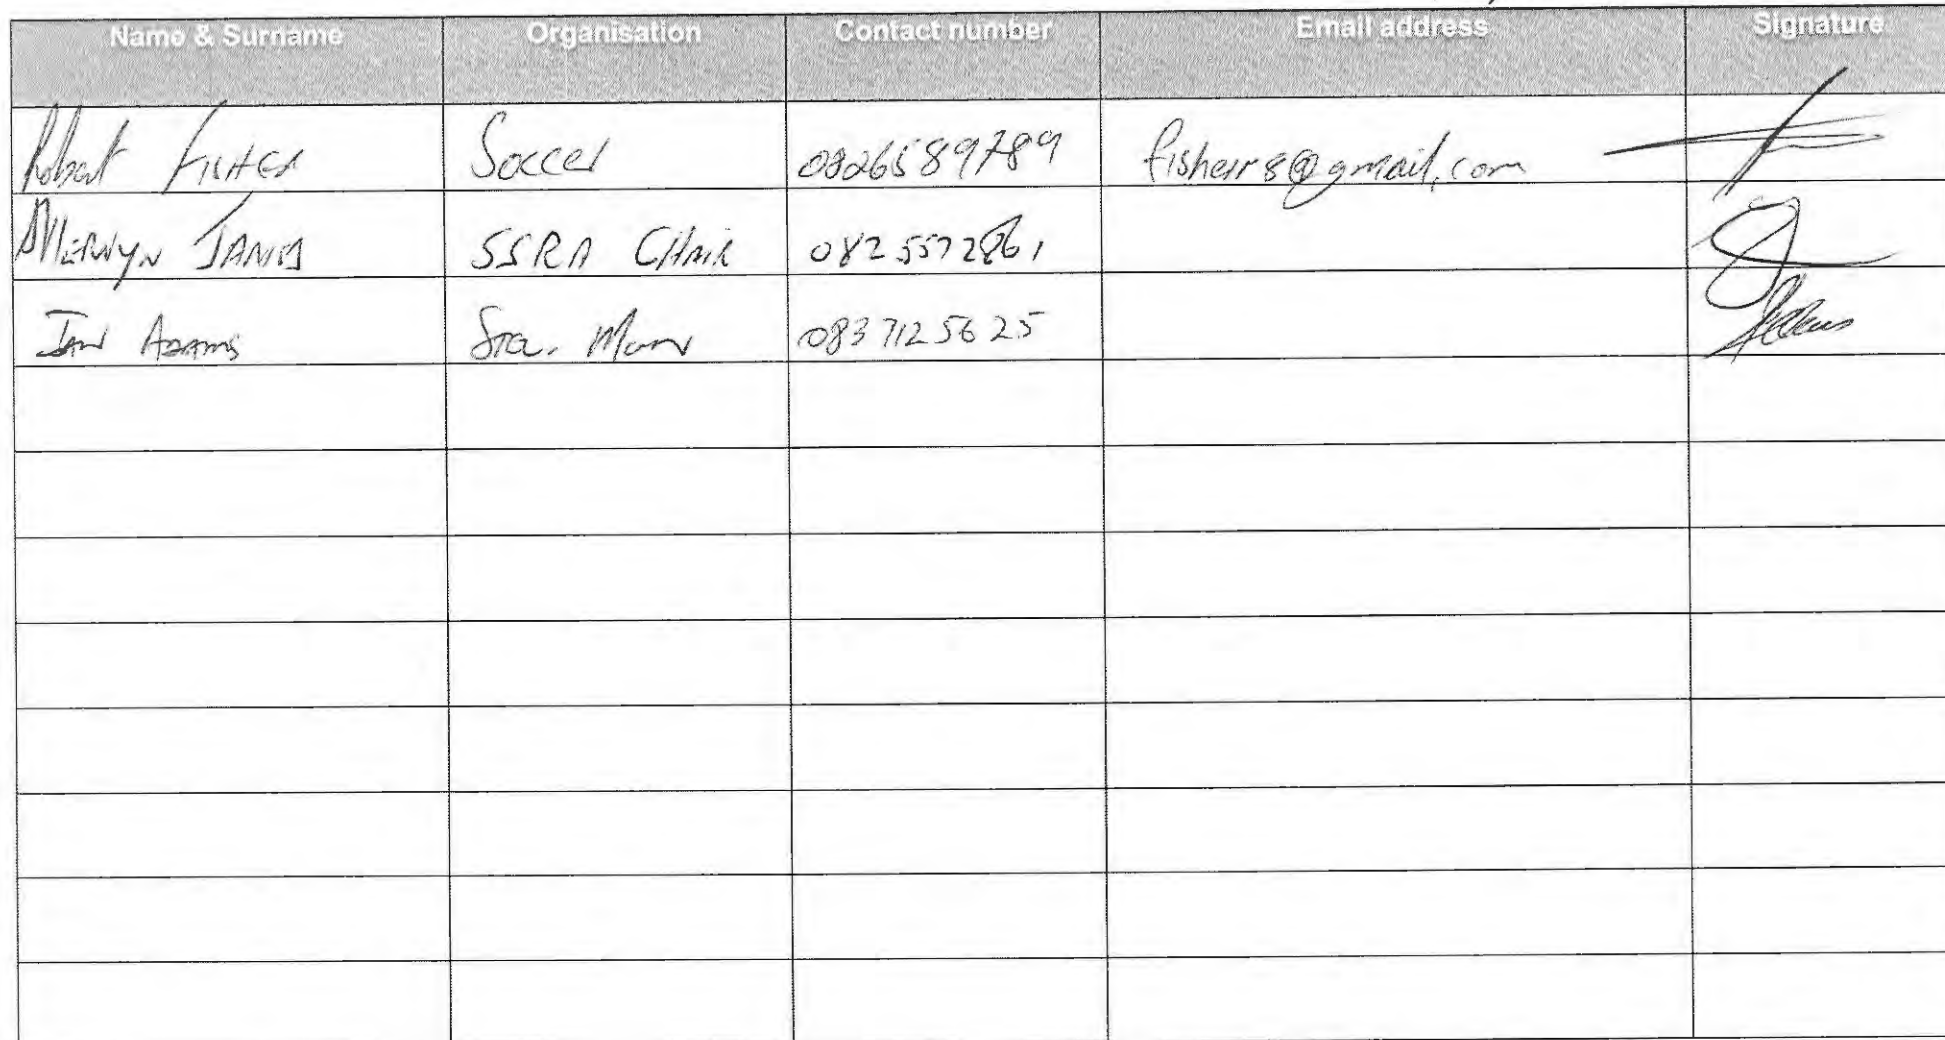 Name & Surname Organisation Contact number Email address Signature
Robert FISHER Soccer 0826589789 fisherr8@gmail.com
MERWYN SSRA CHAIR 0825572861
IAN ADAMS 0837125625